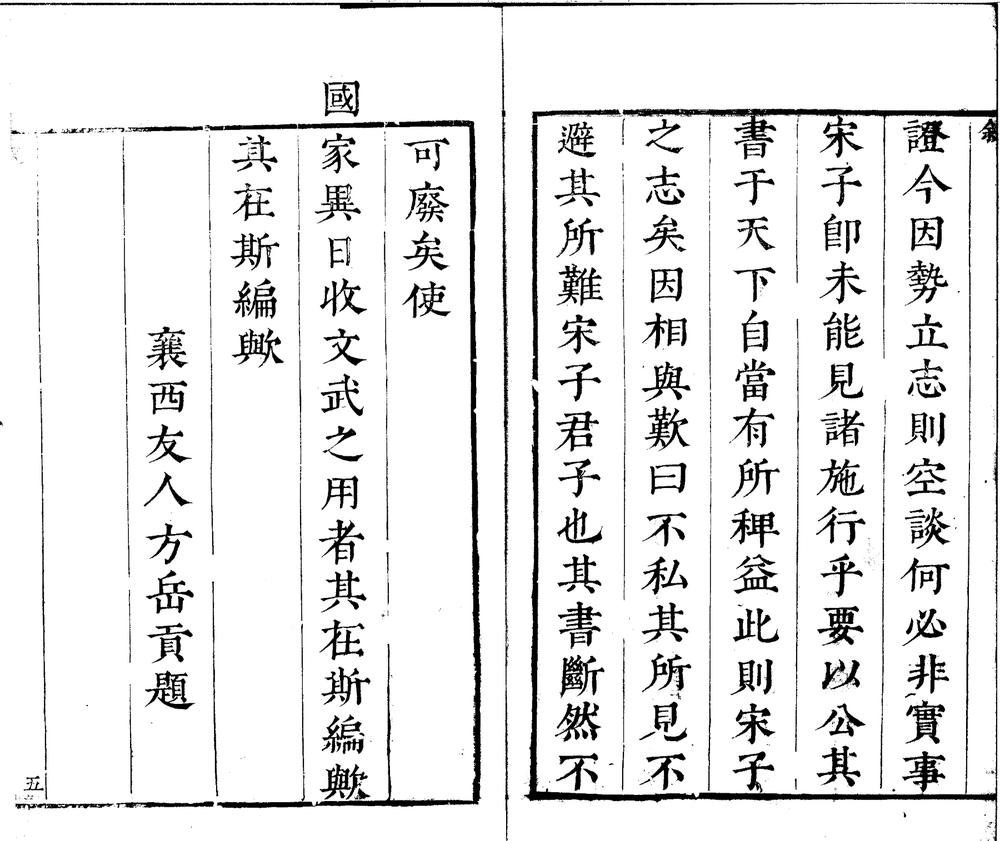 證今因勢立志則空談何必非實事
宋子卽未能見諸施行乎要以公其
書于天下自當有所稗益此則宋子
之志矣因相與歎曰不私其所見不
避其所難宋子君子也其書斷然不
可廢矣使
國家異日收文武之用者其在斯編歟
其在斯編歟
襄西友人方岳貢題
五